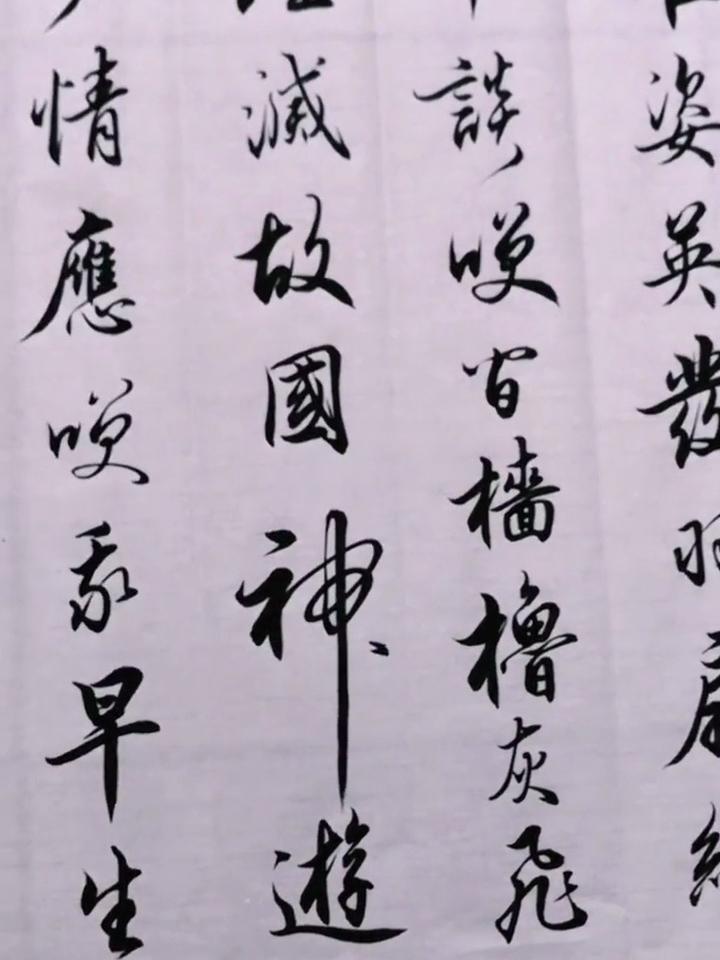 姿英發羽扇綸
談咲間檣櫓灰飛
滅故國神遊
情應咲我早生